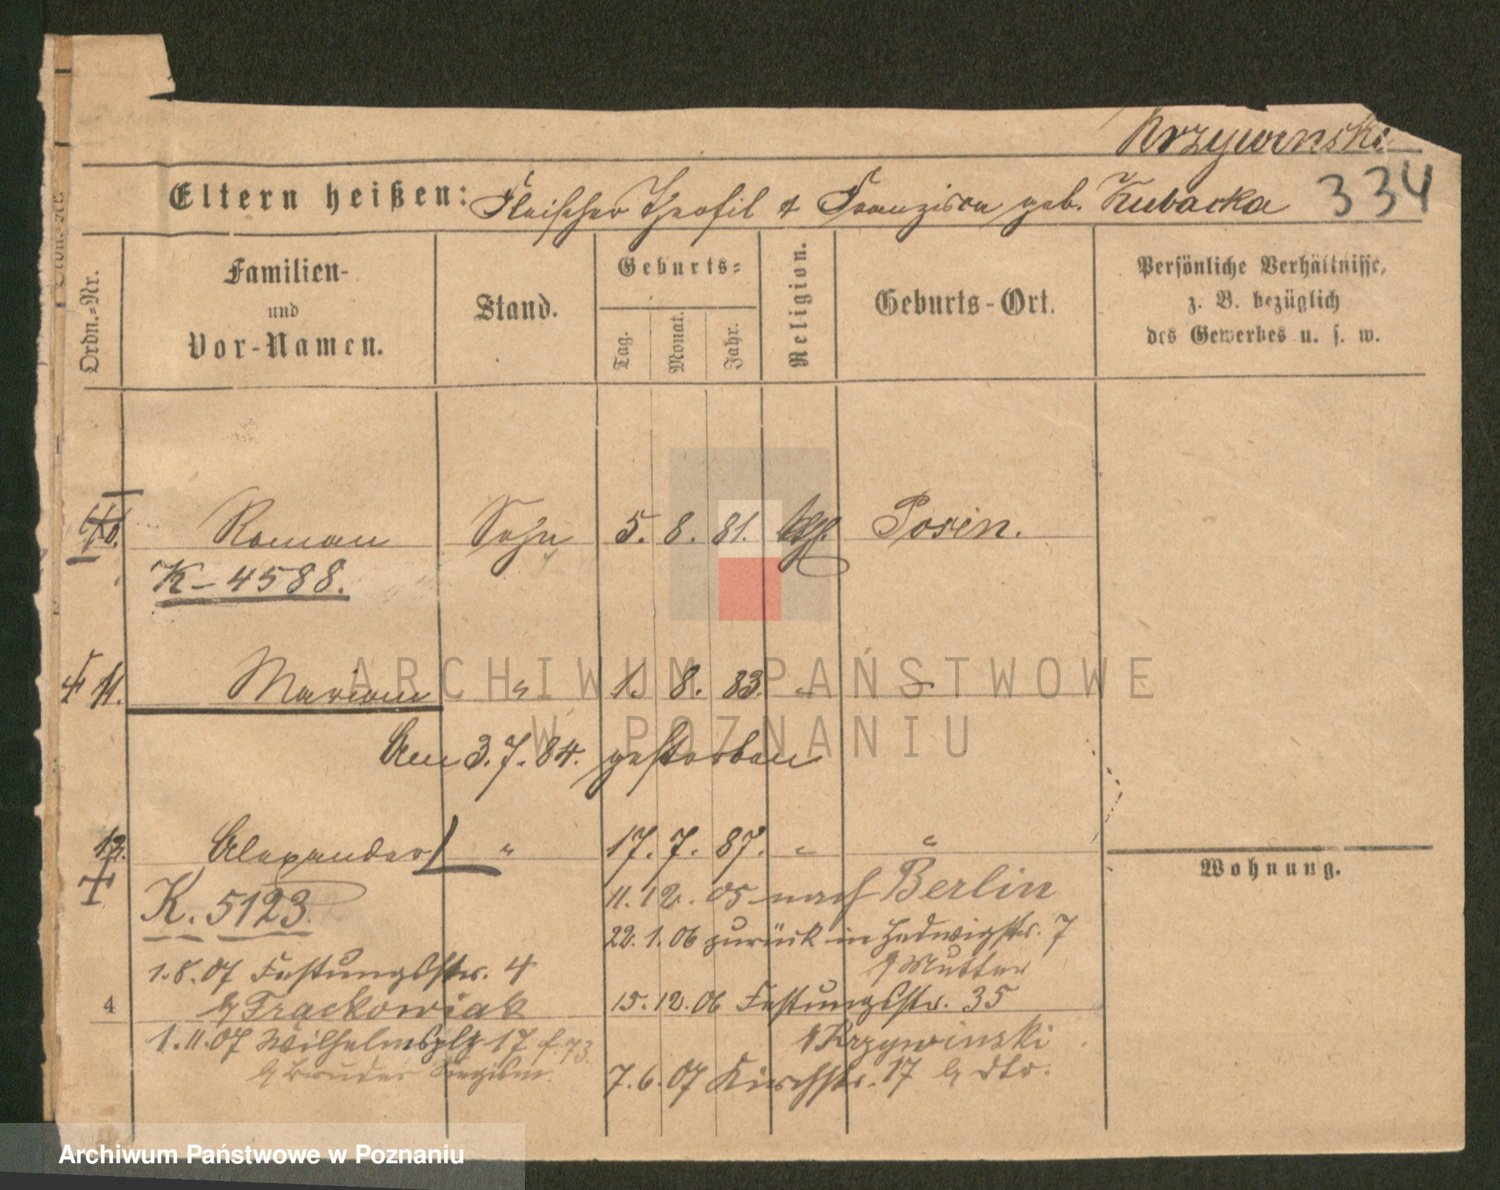 Krzywinski
334
Eltern heißen: Fleischer Theofil & Franziska geb. Kubacka
Ordn.-Nr.
Familien-
und
Vor-Namen.
Stand.
Geburts-
Tag.
Monat.
Jahr.
Religion.
Geburts-Ort.
Persönliche Verhältnisse,
z. B. bezüglich
des Gewerbes u. s. w.
Roman Sohn 5. 8. 81. Posen.
K-4588.
11. Marian " 1. 8. 83. " "
Am 3.7.84. gestorben
12. Alexander " 17. 7. 87. " "
K. 5123.
11.12.05 nach Berlin
22.1.06 zurück in Hedwigstr. 7
b/ Mutter
15.12.06 Festungsstr. 35
b/ Krzywinski
7.6.07 Kirchstr. 17 b/ dto.
1.8.07 Festungsstr. 4
b/ Frackowiak
1.11.07 Wilhelmsplz 17 f. 73.
b/ Bruder
4
Wohnung.
ARCHIWUM PAŃSTWOWE
W POZNANIU
Archiwum Państwowe w Poznaniu